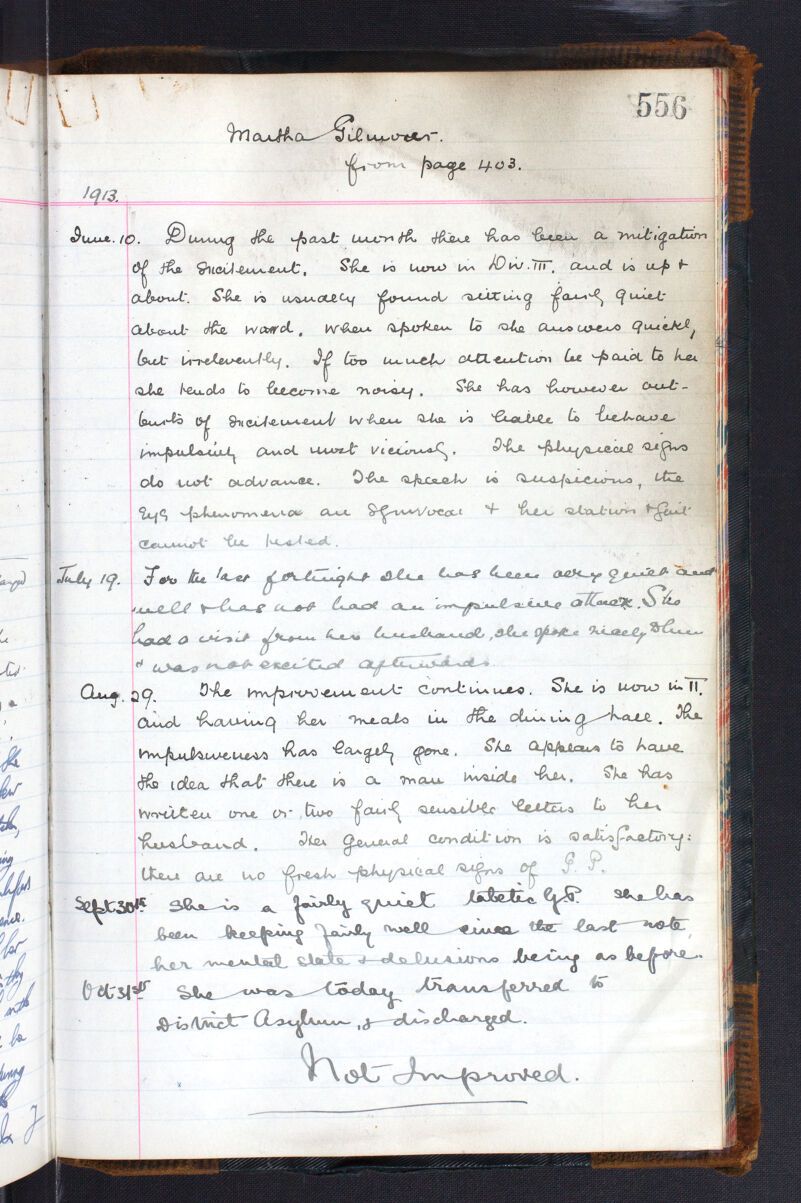 556
Martha Gilmour.
from page 403.
1913.
June. 10. During the past month there has been a mitigation
of the excitement. She is now in Div. III. and is up &
about. She is usually found sitting fairly quiet
about the ward. When spoken to she answers quickly,
but irrelevently. If too much attention be paid to her
she tends to become noisy. She has however out-
bursts of excitement when she is liable to behave
impulsively and most viciously. The physical signs
do not advance. The speech is suspicious, the
eye phenomena are & her station & gait
cannot be tested.
July 19. For the last fortnight she has been very quiet and
well & has not had an impulsive attack. She
had a visit from her husband, she spoke nicely to him
& was not excited afterwards.
Aug. 29. The improvement continues. She is now in II.
and having her meals in the dining hall. The
impulsiveness has largely gone. She appears to have
the idea that there is a man inside her. She has
written one or two fairly sensible letters to her
husband. Her general condition is satisfactory:
there are no fresh physical signs of G. P.
Sept 30th She is a fairly quiet tabetic G.P. She has
been keeping fairly well since the last note,
her mental state & delusions being as before.
Oct 31st She was today transferred to
District Asylum, & discharged.
Not Improved.